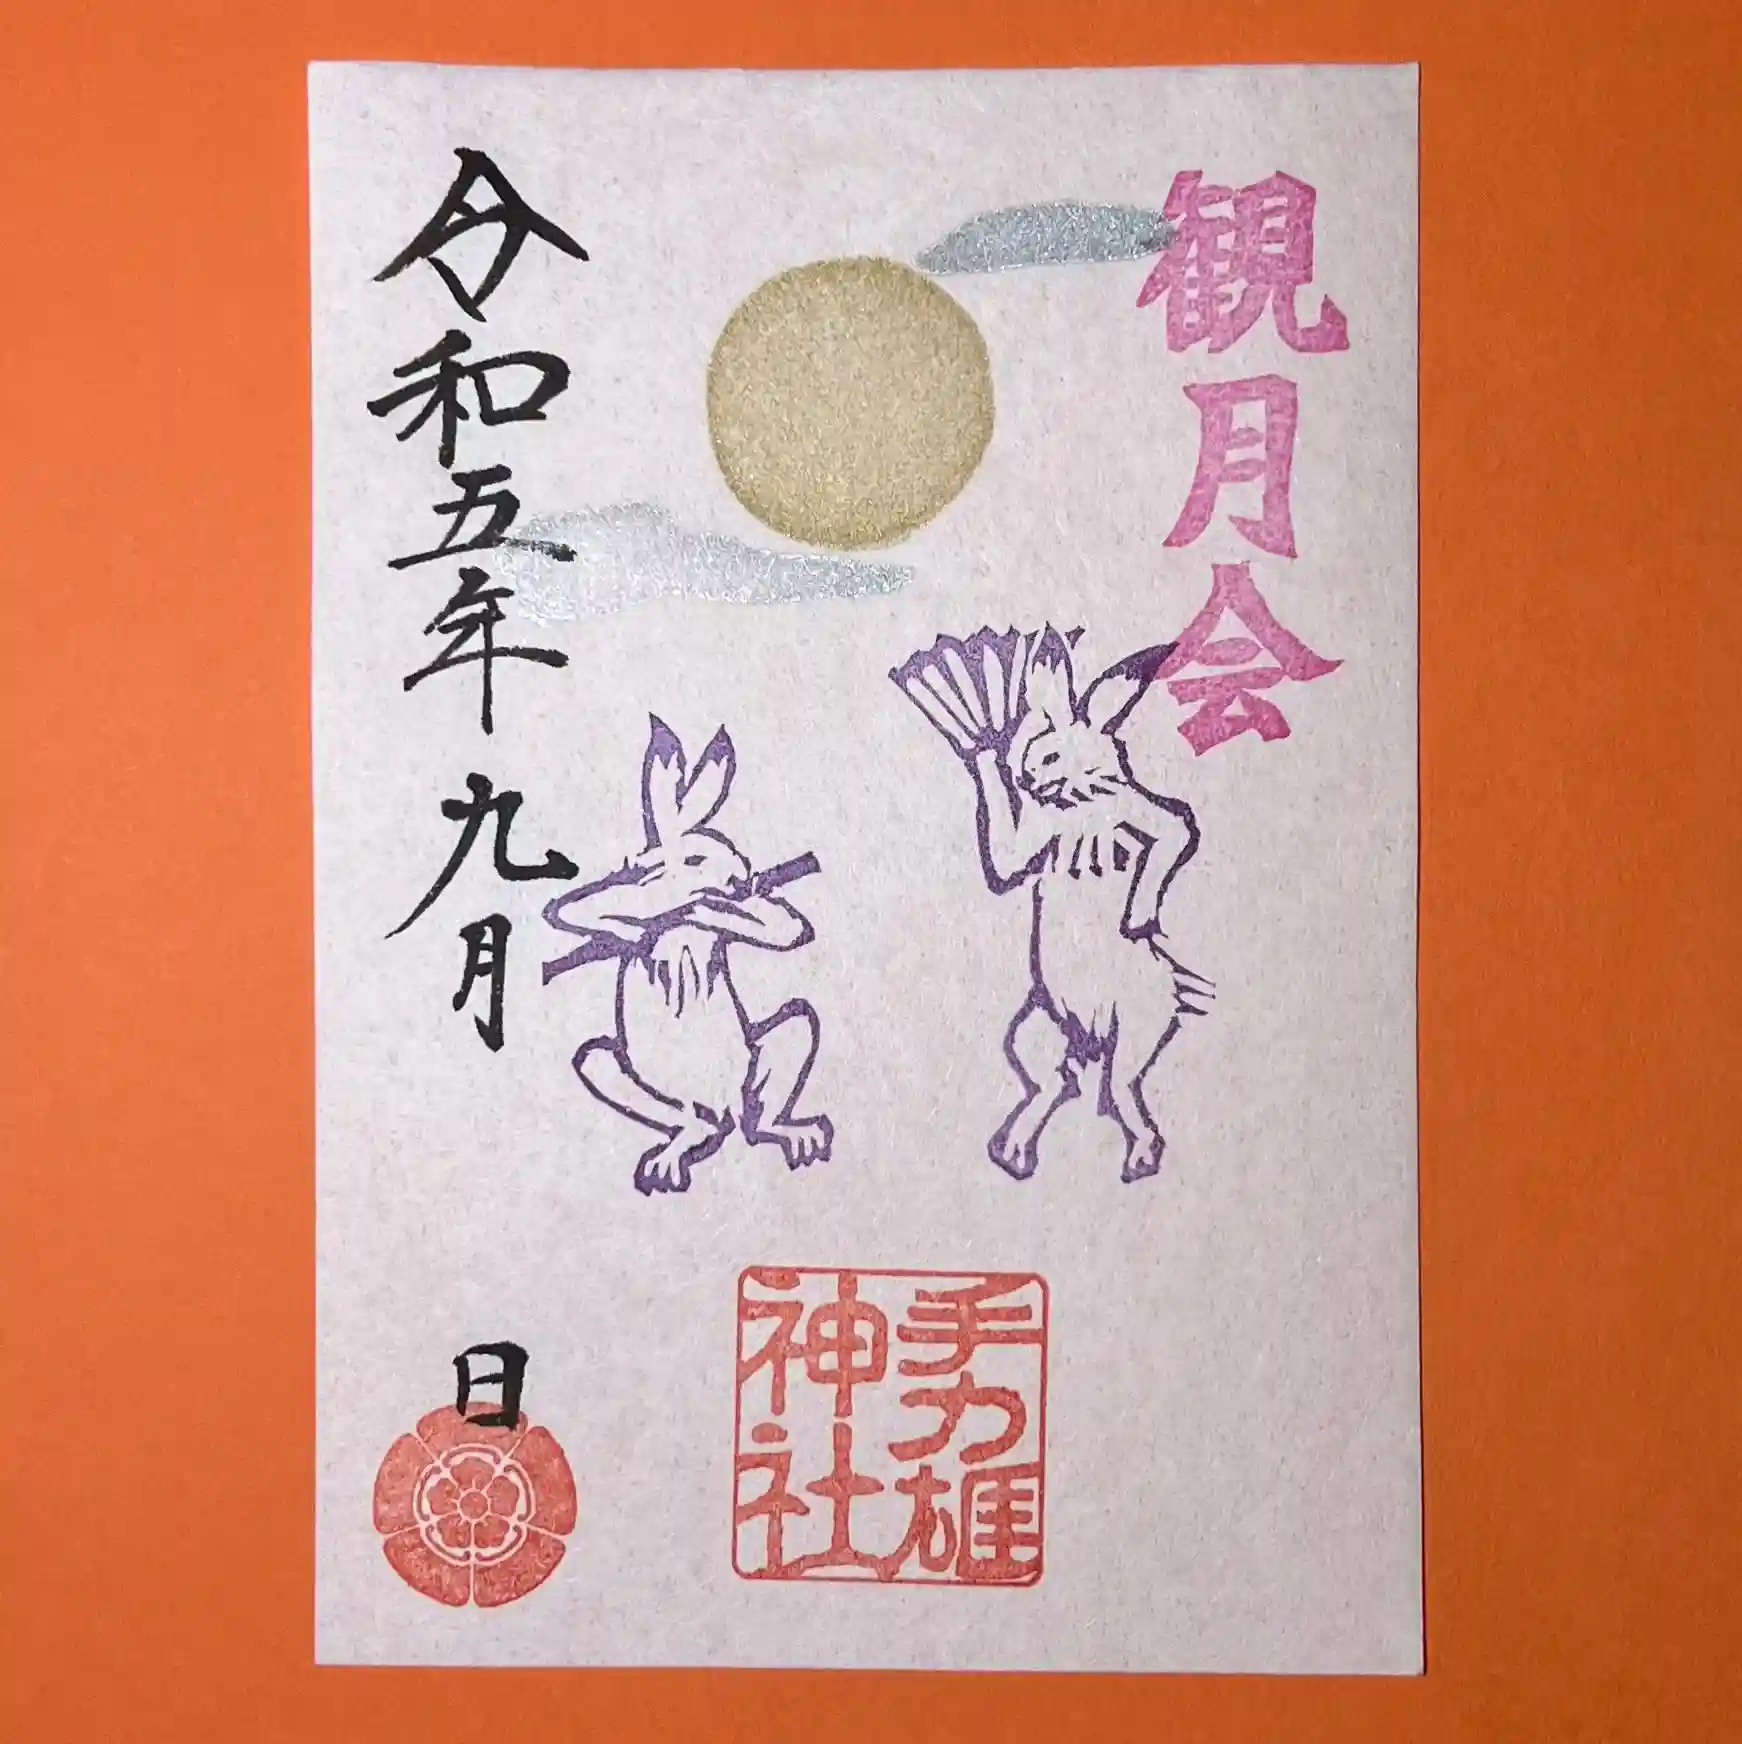 観月会
令和五年九月 日
手力雄
神社